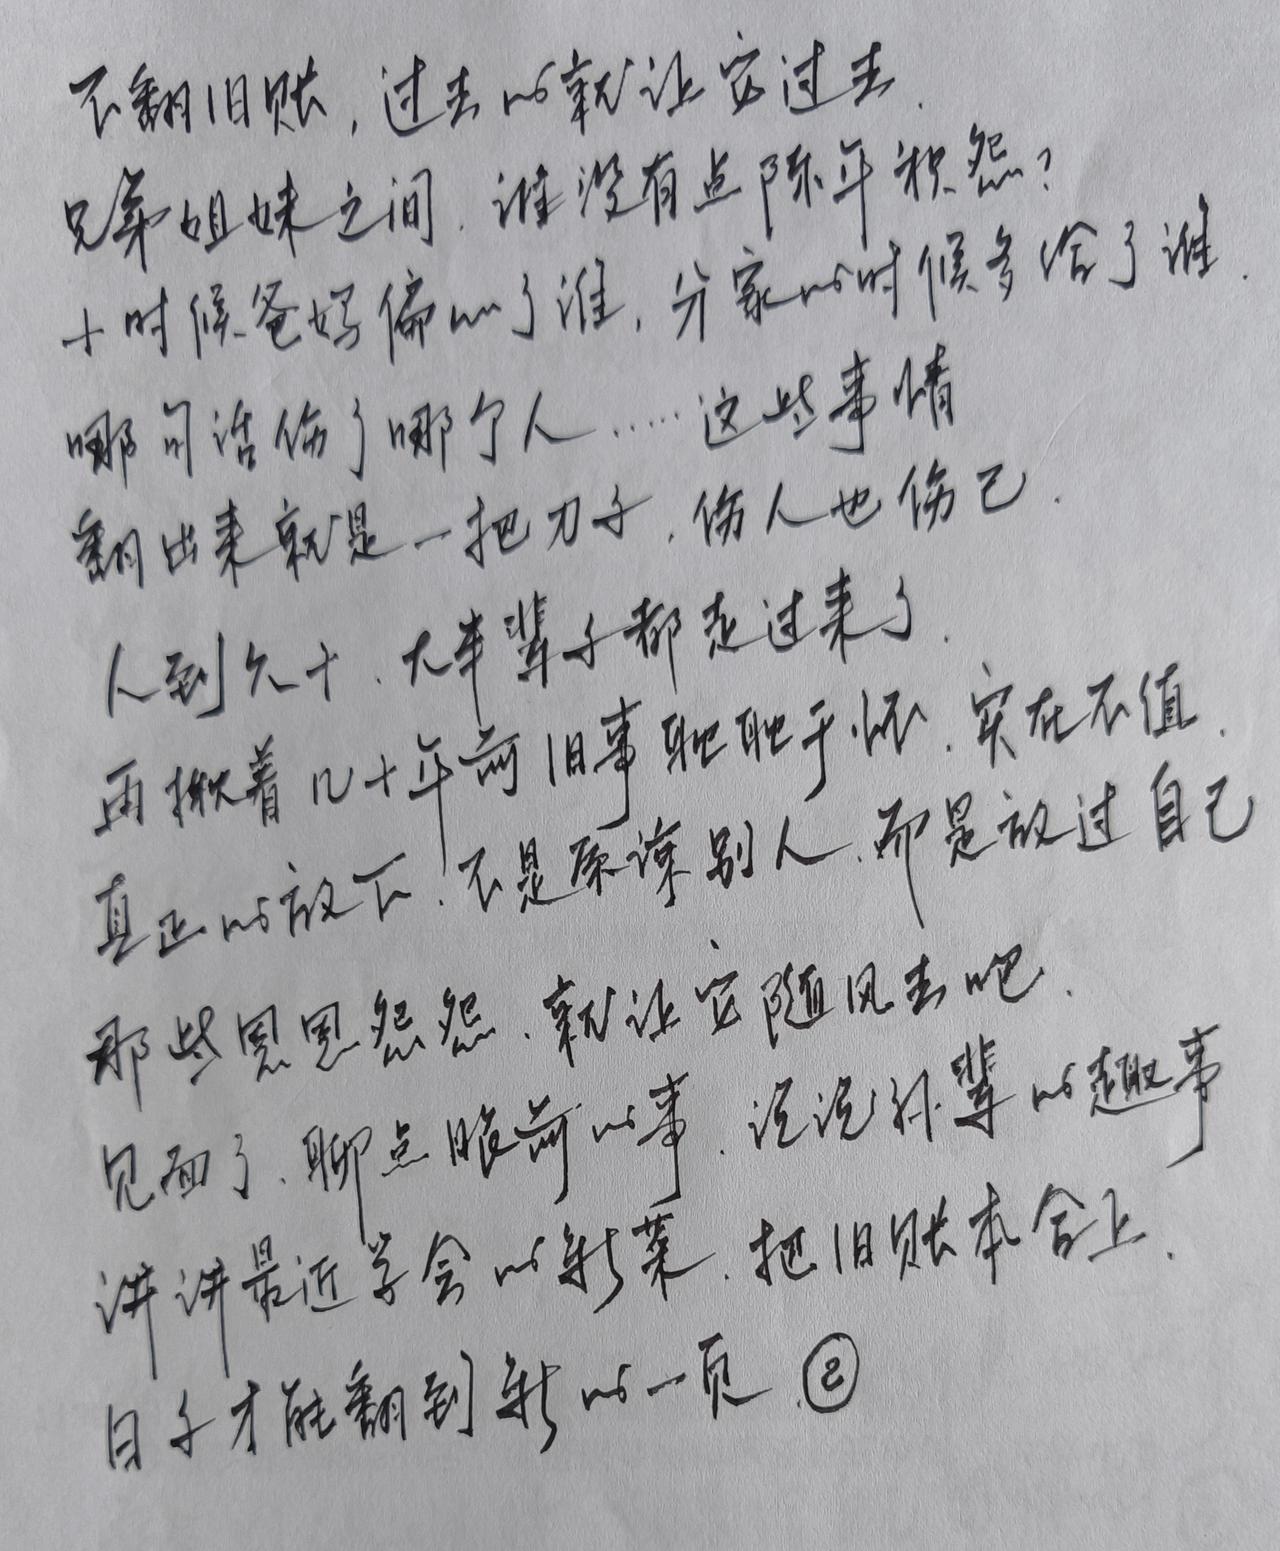 不翻旧账，过去的就让它过去.
兄弟姐妹之间.谁没有点陈年积怨?
小时候爸妈偏心了谁,分家的时候多给了谁.
哪句话伤了哪个人……这些事情
翻出来就是一把刀子.伤人也伤己.
人到六十.大半辈子都走过来了.
再揪着几十年前旧事耿耿于怀.实在不值.
真正的放下.不是原谅别人.而是放过自己
那些恩恩怨怨.就让它随风去吧.
见面了.聊点眼前的事.说说孙辈的趣事
讲讲最近学会的新菜.把旧账本合上.
日子才能翻到新的一页.②